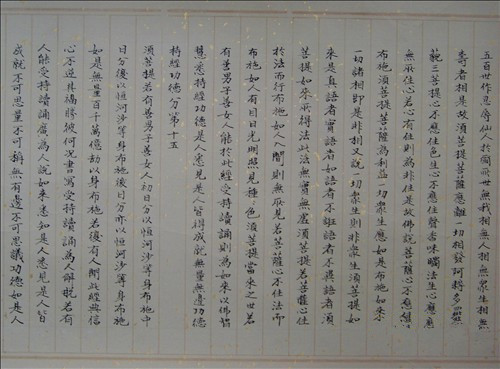 五百世作忍辱仙人於爾世無人相無眾生相無
壽者相是故須菩提菩薩應離一切相發阿耨多羅
藐三菩提心不應住色生心不應住聲香味觸法生心應
無所住心若心有住則為非住是故佛說菩薩心不應
布施須菩提菩薩為利益一切眾生應如是布施如來
一切諸相即是非相又說一切眾生則非眾生須菩提如
來是真語者實語者如語者不誑語者不異語者須
菩提如來所得法此法無實無虛須菩提若菩薩心住
於法而行布施如人入闇則無所見若菩薩心不住法而
布施如人有目日光明照見種種色須菩提當來之世若
有善男子善女人能於此經受持讀誦則為如來以佛智
慧悉持經功德是人悉見是人皆得成就無量無邊功德
持經功德分第十五
須菩提若有善男子善女人初日分以恒河沙等身布施中
日分復以恒河沙等身布施後日分亦以恒河沙等身布施
如是無量百千萬億劫以身布施若復有人聞此經典信
心不逆其福勝彼何況書寫受持讀誦為人解說若有
人能受持讀誦廣為人說如來悉知是人悉見是人皆
成就不可思量不可稱無有邊不可思議功德如是人